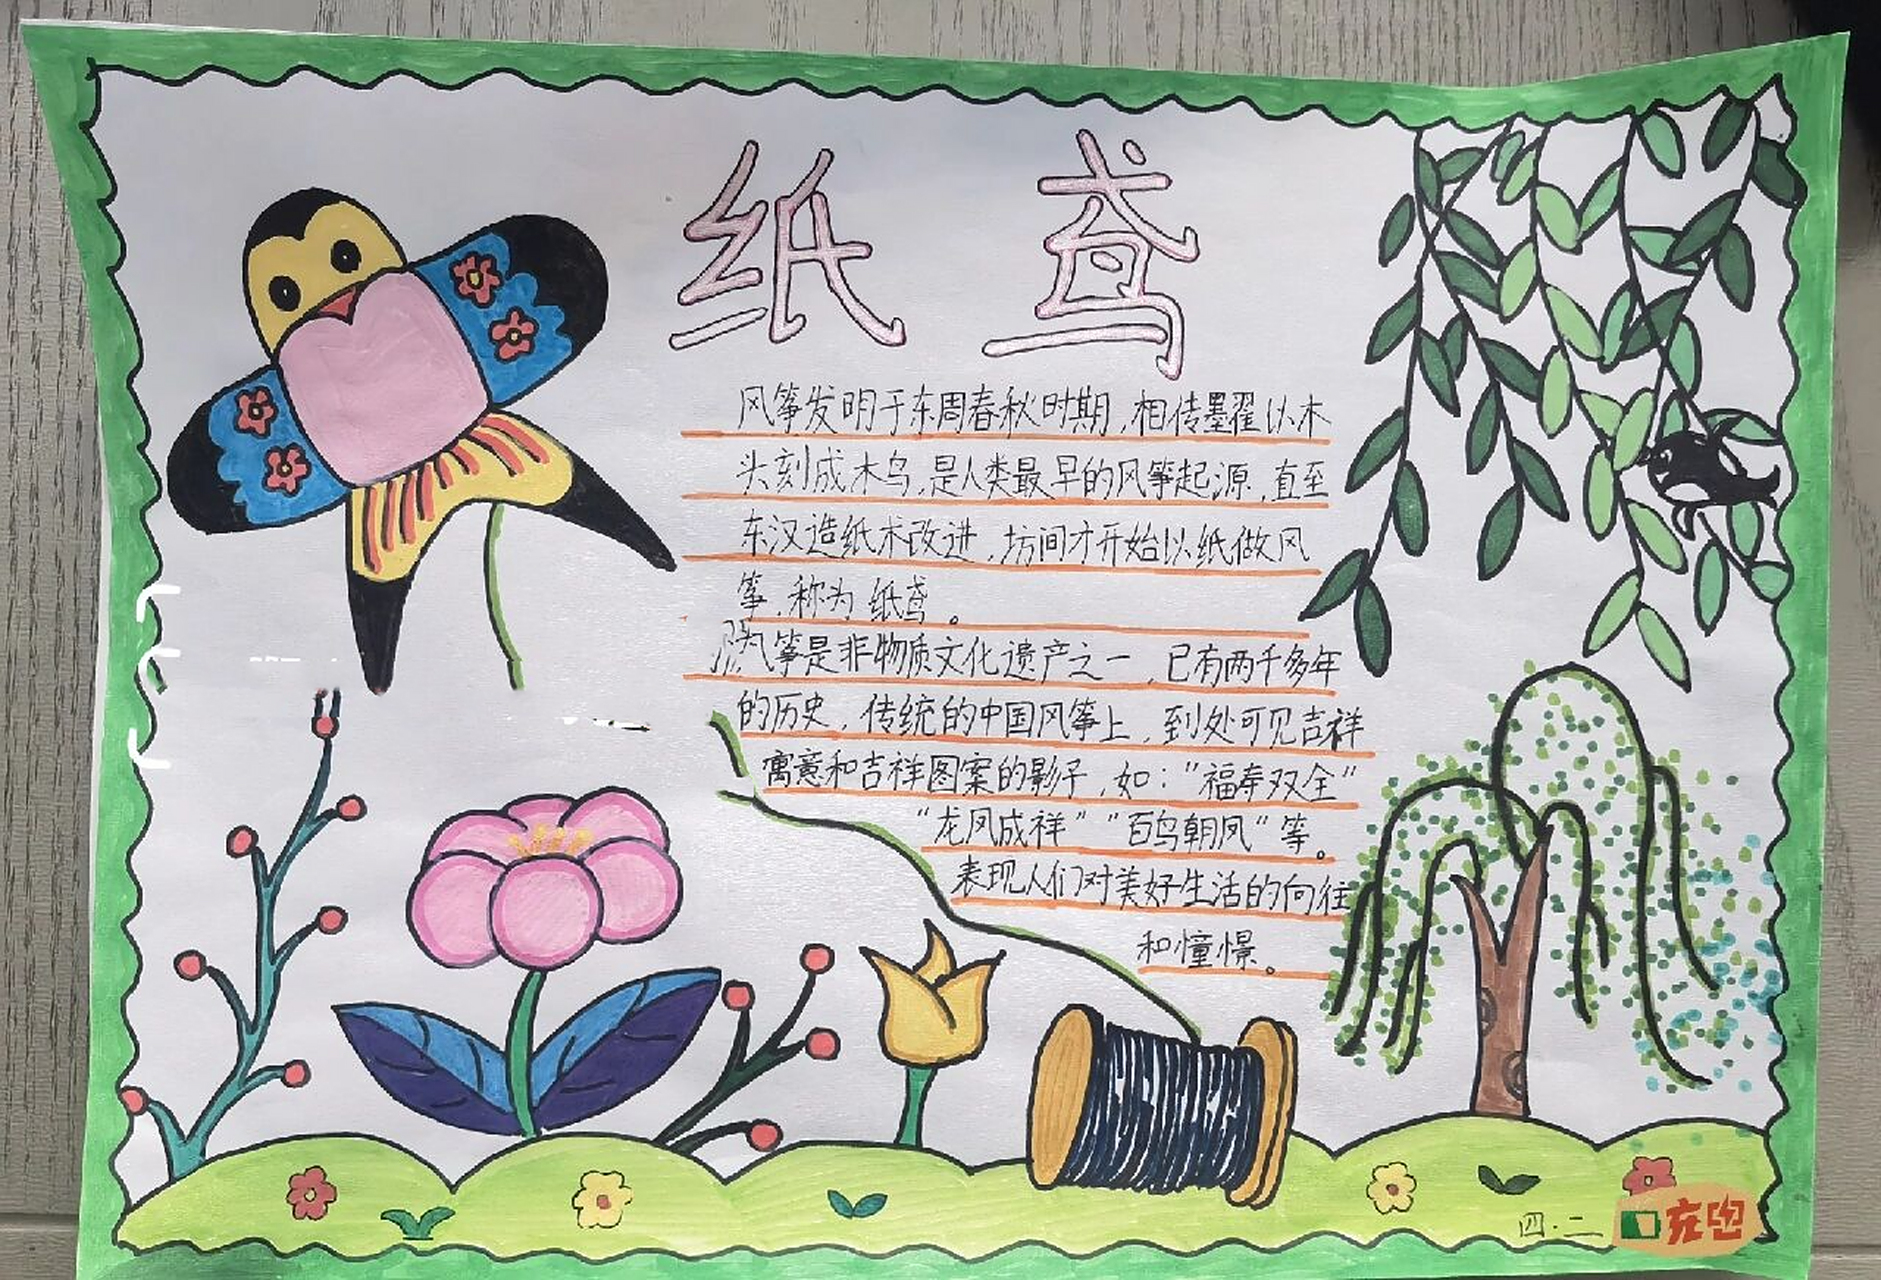 纸鸢
风筝发明于东周春秋时期，相传墨翟以木
头刻成木鸟，是人类最早的风筝起源，直至
东汉造纸术改进，坊间才开始以纸做风
筝，称为纸鸢。
风筝是非物质文化遗产之一，已有两千多年
的历史，传统的中国风筝上，到处可见吉祥
寓意和吉祥图案的影子，如：“福寿双全”
“龙凤成祥”“百鸟朝凤”等。
表现人们对美好生活的向往
和憧憬。
四.二
充电